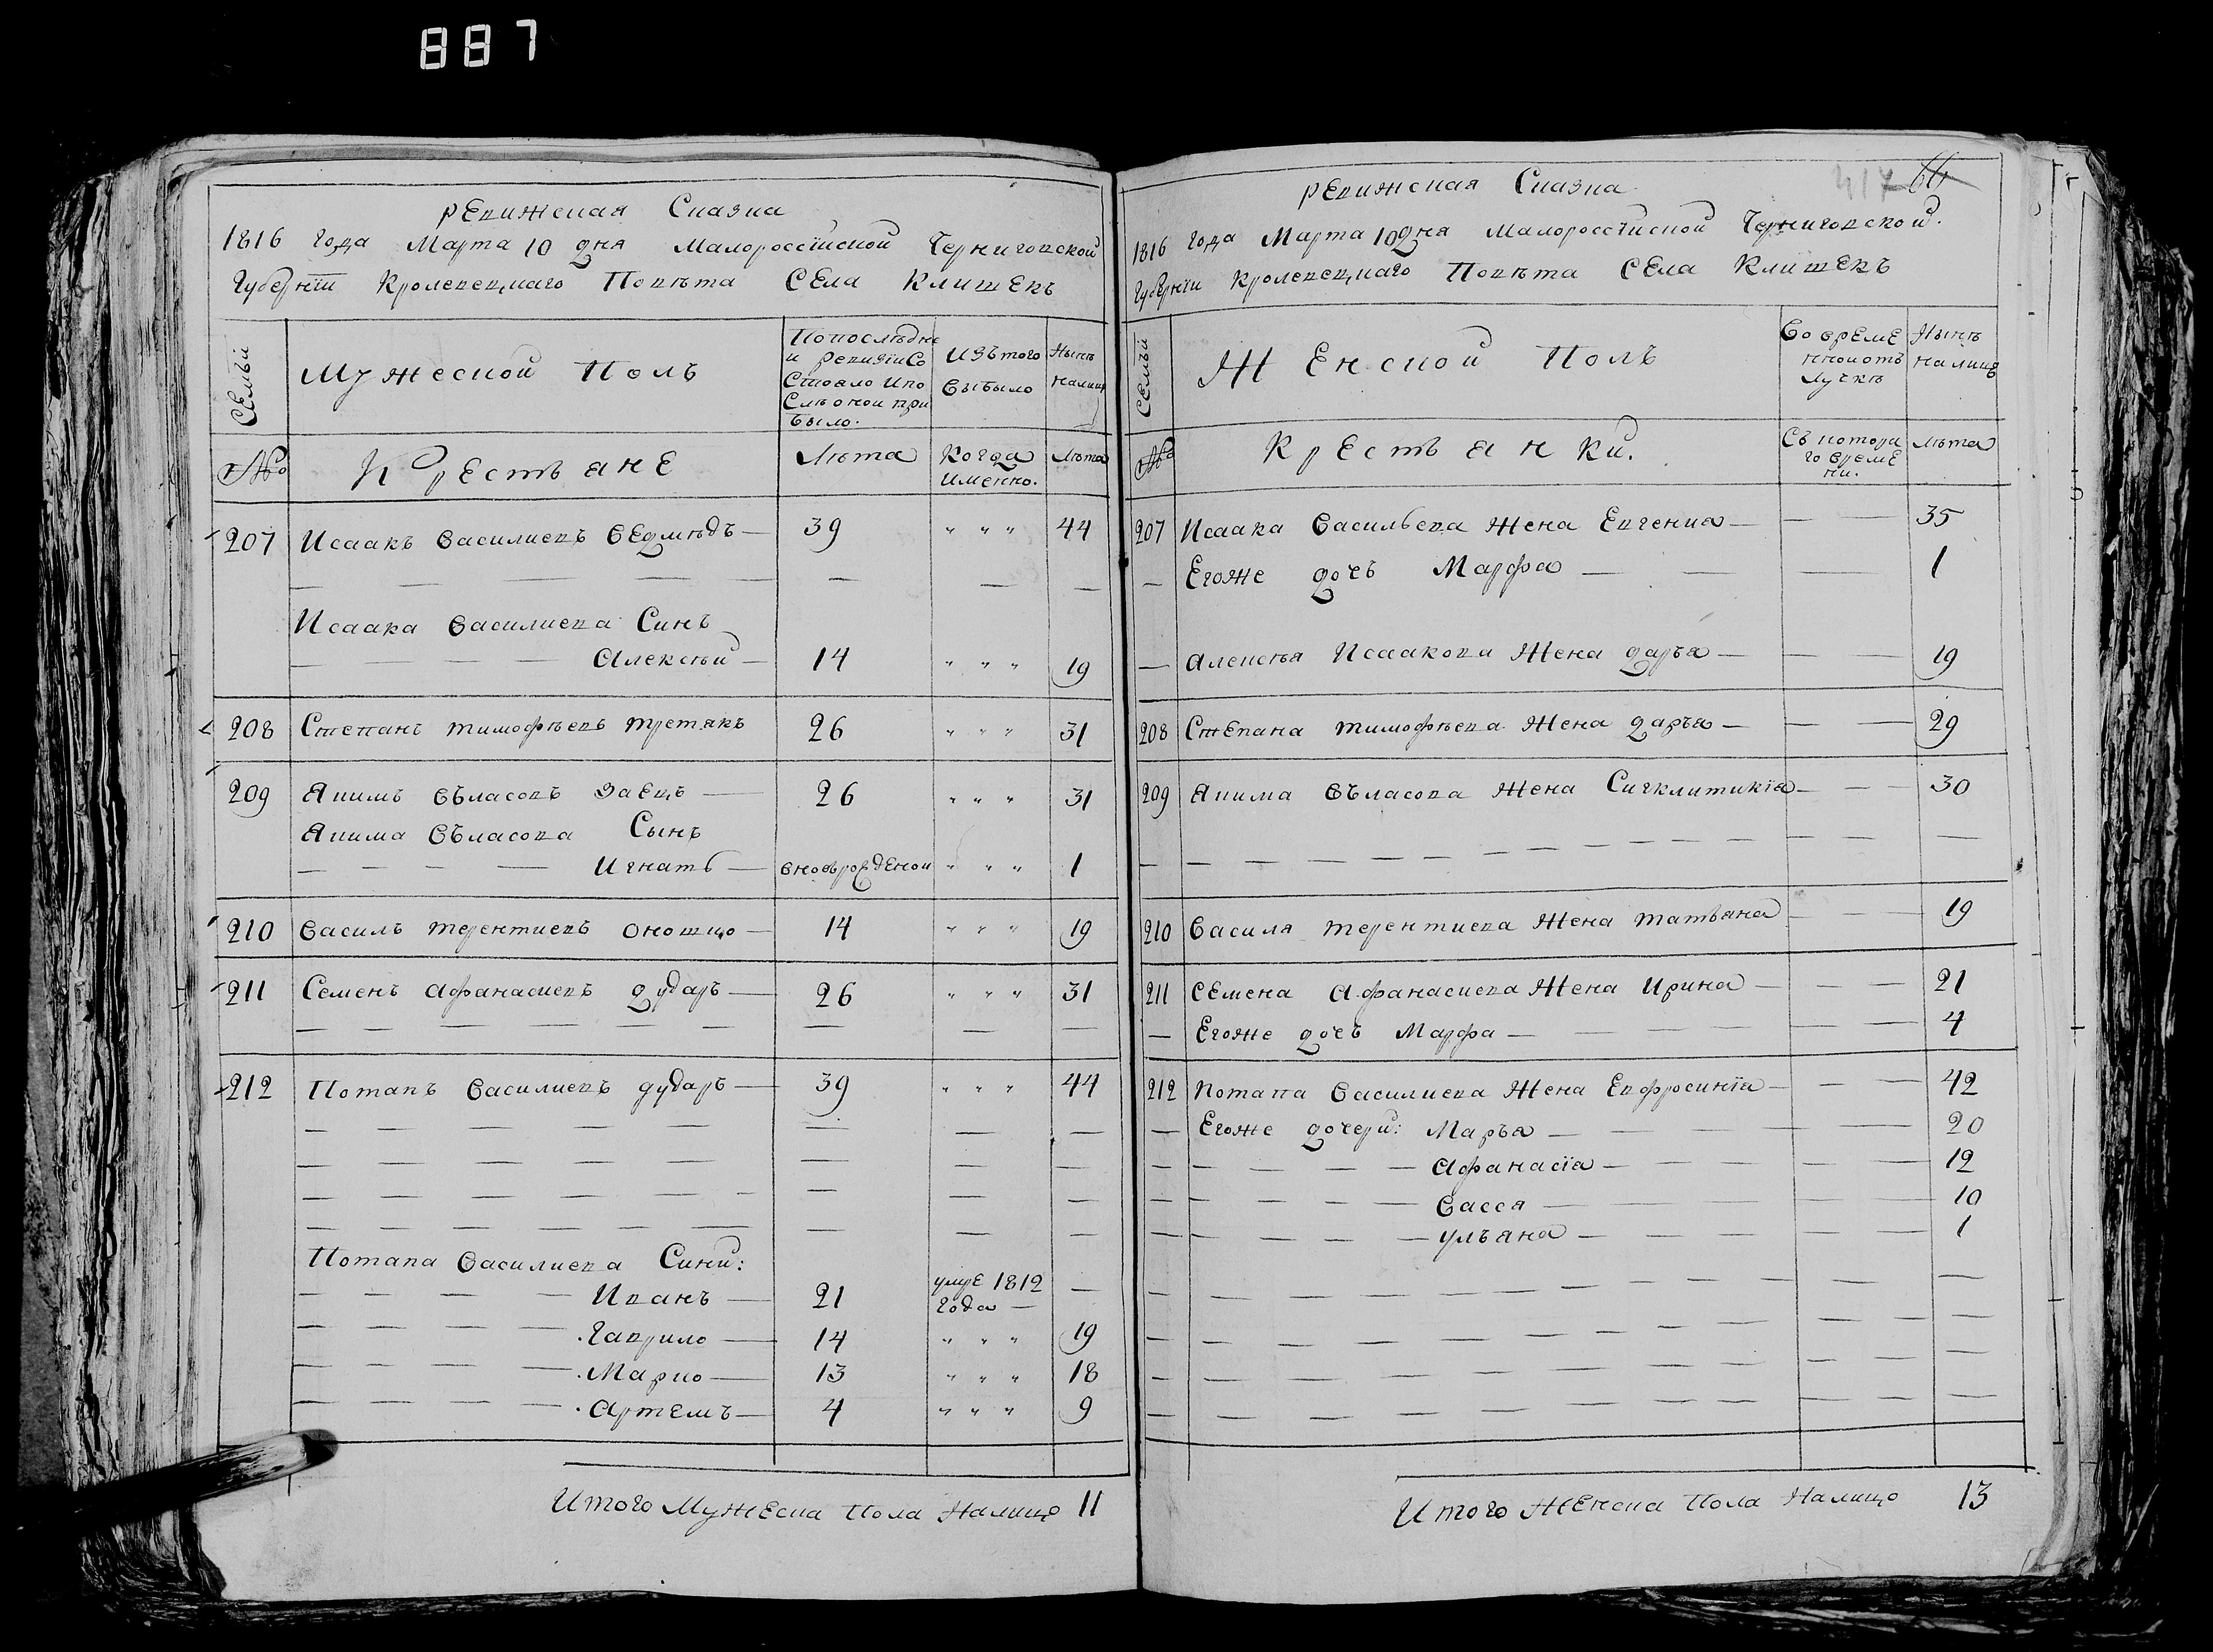 887
Ревижская Сказка
1816 года Марта 10 дня Малороссійской Черниговской
Губерніи Кролевецкаго Повѣта Села Клишекъ
Семьи
Мужеской Полъ
Попослѣдне
и ревизіи Со
стояло ипо
слѣ оной при
было.
Изътого
выбыло
Нынѣ
налицо
№
Крестьяне
Лѣта
Когда
именно.
Лѣта
207 Исаакъ Василиевъ Ведмѣдъ — 39 " " " 44
Исаака Василиева Синъ
Алексѣй — 14 " " " 19
208 Степанъ Тимофѣевъ Третякъ 26 " " " 31
209 Якимъ Въласовъ Заецъ — 26 " " " 31
Якима Въласова Сынъ
Игнатъ — вновьрожденой " " " 1
210 Василъ Терентиевъ Оношко — 14 " " " 19
211 Семенъ Афанасиевъ Дударъ — 26 " " " 31
212 Потапъ Василиевъ Дударъ — 39 " " " 44
Потапа Василиева Сини:
Иванъ — 21 умре 1812
года —
Гаврило — 14 " " " 19
Марко — 13 " " " 18
Артемъ — 4 " " " 9
Итого Мужеска Пола Налицо 11
417 66
Ревижская Сказка
1816 года Марта 10 дня Малороссійской Черниговской.
Губерніи Кролевецкаго Повѣта Села Клишекъ
Семьи
Женской Полъ
Во време
нной отъ
лучкѣ
Нынѣ
налицо
№
Крестьянки.
Съ котора
го време
ни.
Лѣта
207 Исаака Васильева Жена Евгения — 35
Егоже дочъ Марфа — 1
Алексѣя Исаакова Жена Даръя — 19
208 Степана Тимофѣева Жена Даръя — 29
209 Якима Въласова Жена Сигклитикія — 30
210 Василя Терентиева Жена Татьяна 19
211 Семена Афанасиева Жена Ирина — 21
Егоже дочъ Марфа — 4
212 Потапа Василиева Жена Евфросинія — 42
Егоже дочери: Маръя — 20
Афанасія — 12
Васся — 10
Улъяна — 1
Итого Женска Пола Налицо 13